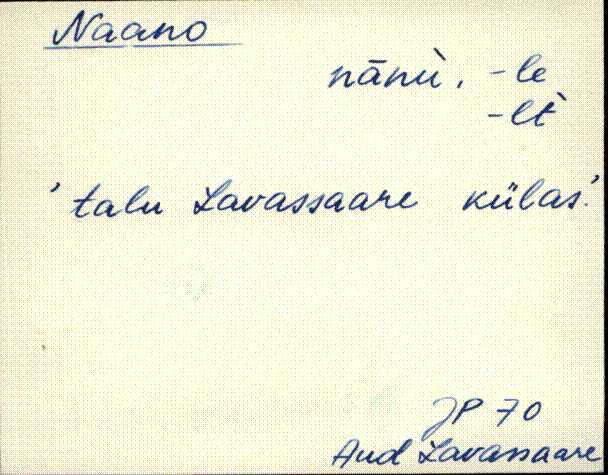 Naano
nānù, -le
-lt̀
'talu Lavassaare külas'.
JP 70
Aud Lavassaare